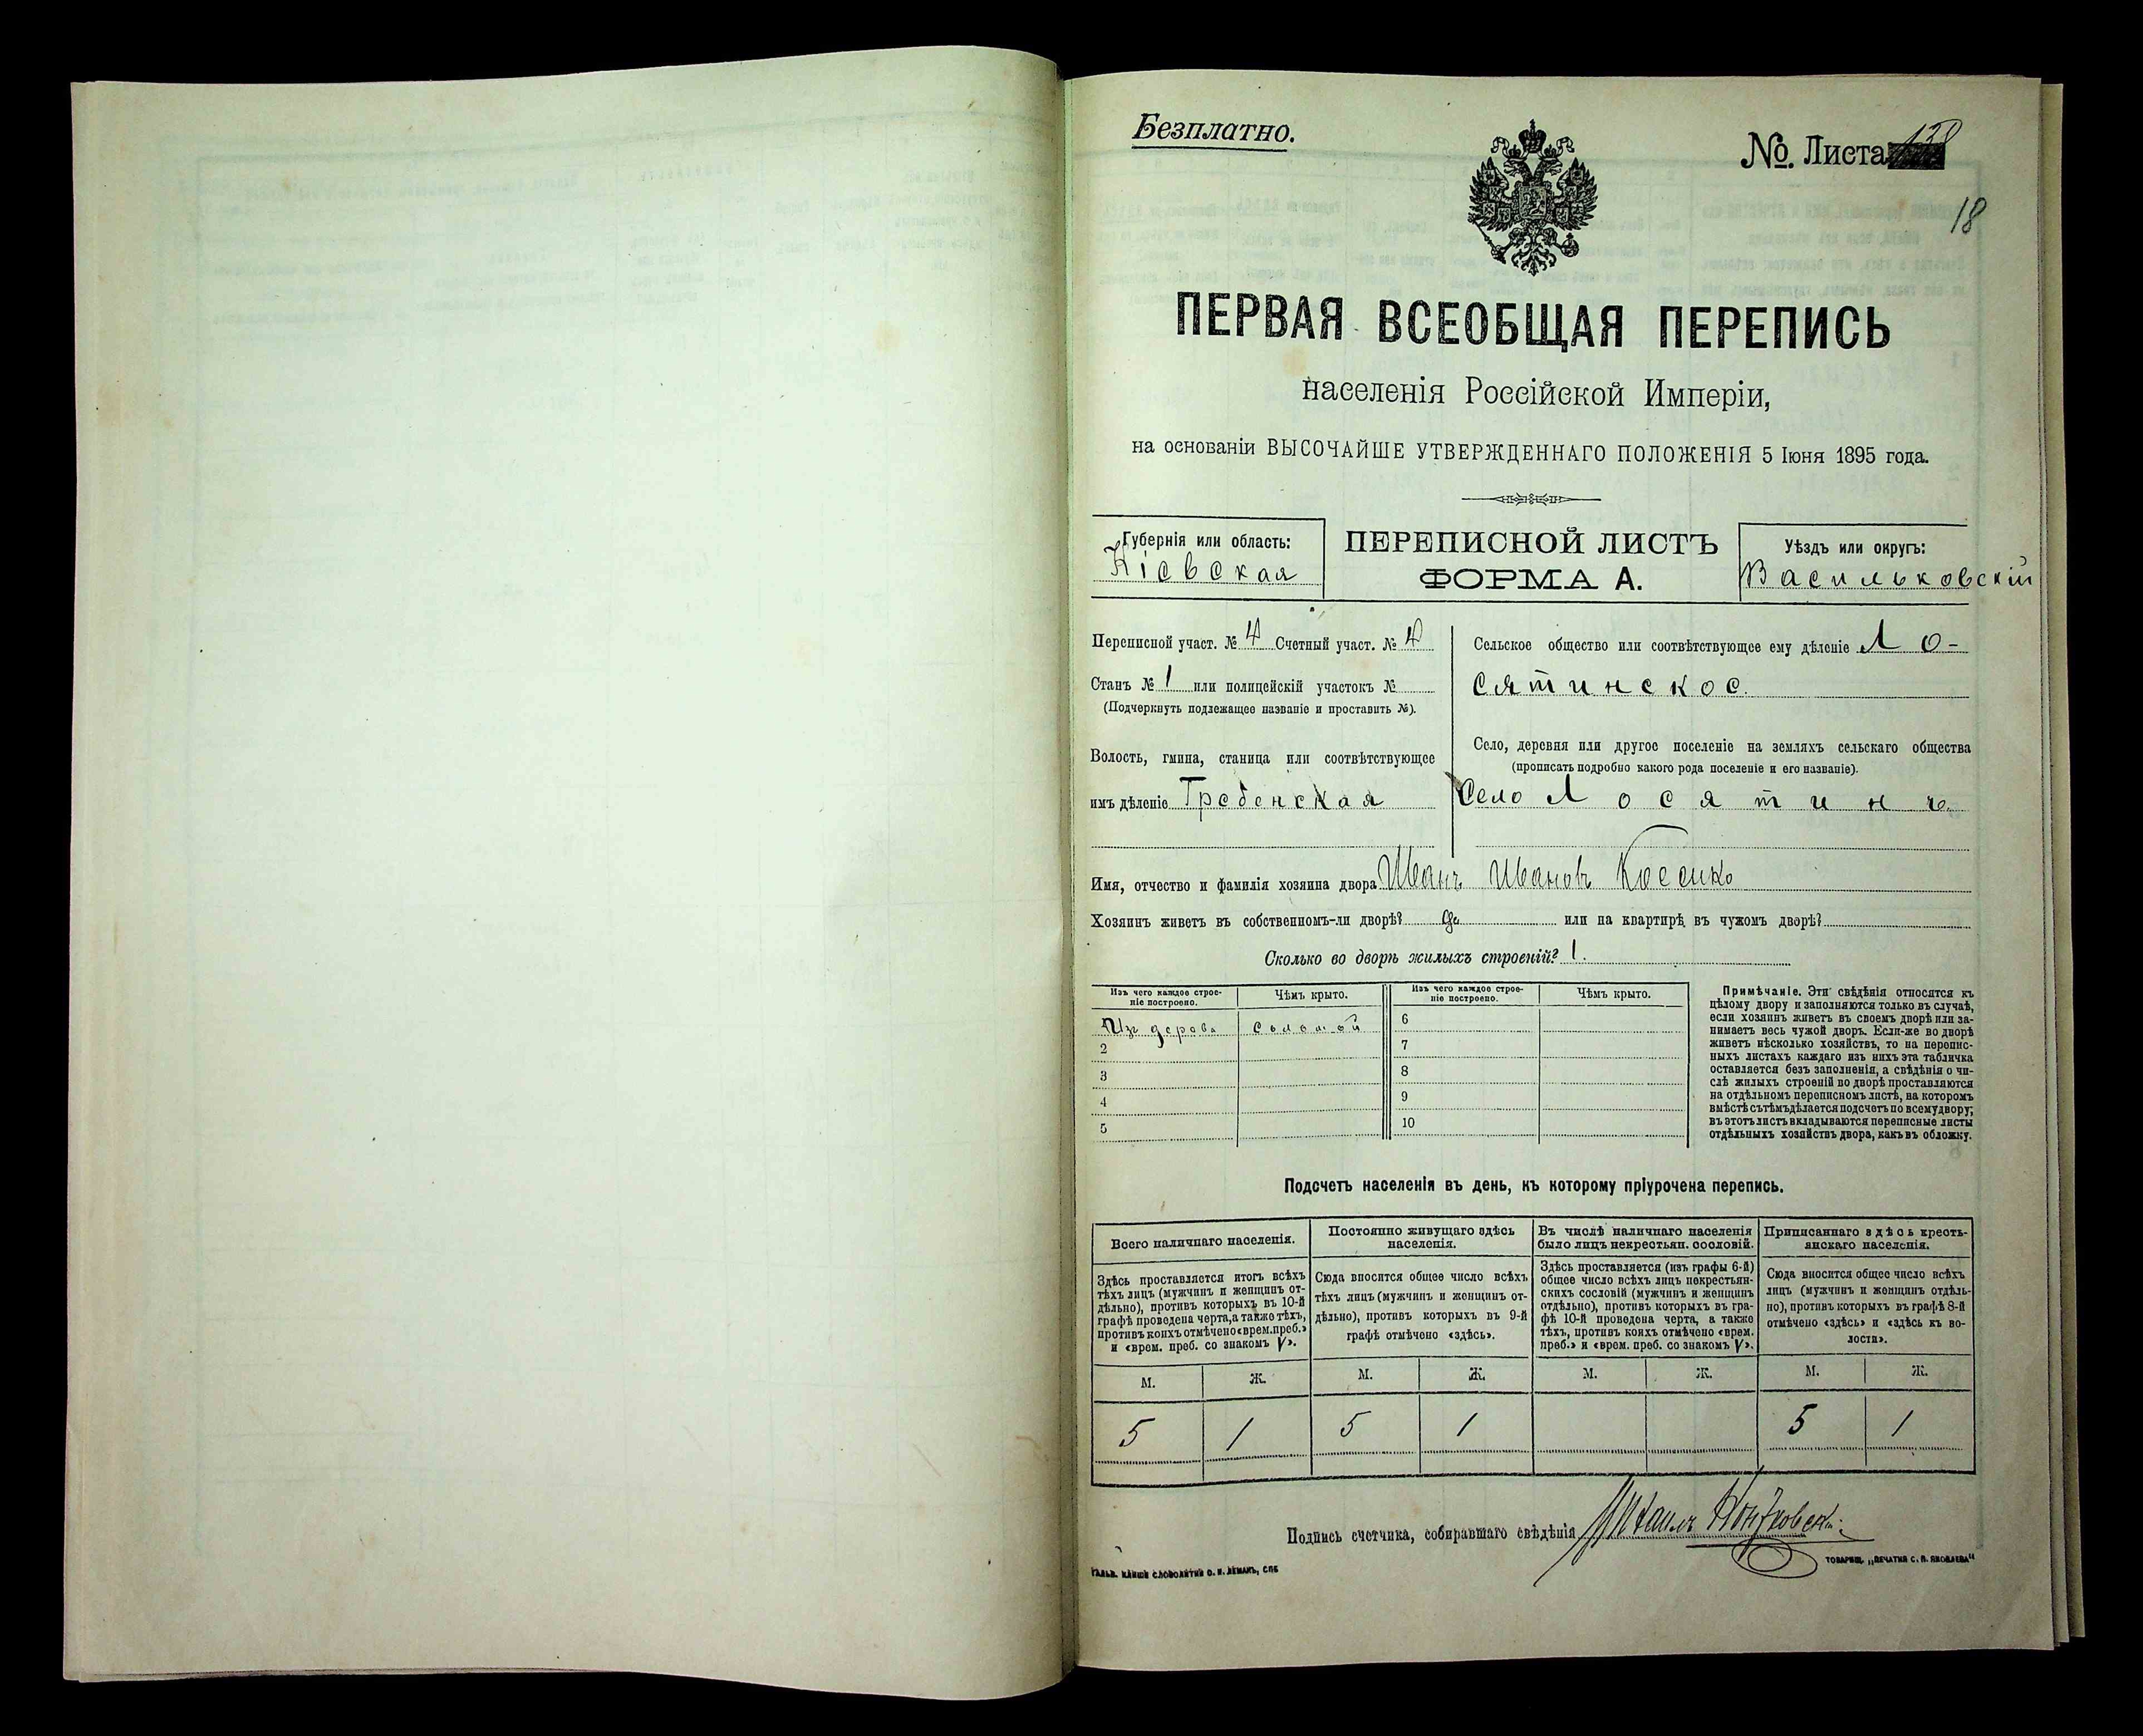 Безплатно.
№. Листа
18
ПЕРВАЯ ВСЕОБЩАЯ ПЕРЕПИСЬ
населенія Россійской Имперіи,
на основаніи ВЫСОЧАЙШЕ УТВЕРЖДЕННАГО ПОЛОЖЕНІЯ 5 Іюня 1895 года.
Губернія или область:
Кіевская
ПЕРЕПИСНОЙ ЛИСТЪ
ФОРМА А.
Уѣздъ или округъ:
Васильковскій
Переписной участ. № 4 Счетный участ. № 4
Станъ № 1 или полицейскій участокъ №
(Подчеркнуть подлежащее названіе и проставить №).
Волость, гмина, станица или соотвѣтствующее
имъ дѣленіе Гребенская
Сельское общество или соотвѣтствующее ему дѣленіе Ло-
сятинское.
Село, деревня или другое поселеніе на земляхъ сельскаго общества
(прописать подробно какого рода поселеніе и его названіе).
Село Лосятинъ
Имя, отчество и фамилія хозяина двора Иванъ Ивановъ
Хозяинъ живетъ въ собственномъ-ли дворѣ? да или на квартирѣ въ чужомъ дворѣ?
Сколько во дворѣ жилыхъ строеній? 1.
Изъ чего каждое строе-
ніе построено.
Чѣмъ крыто.
Изъ чего каждое строе-
ніе построено.
Чѣмъ крыто.
Изъ дерева соломой
2
3
4
5
6
7
8
9
10
Примѣчаніе. Эти свѣдѣнія относятся къ
цѣлому двору и заполняются только въ случаѣ,
если хозяинъ живетъ въ своемъ дворѣ или за-
нимаетъ весь чужой дворъ. Если-же во дворѣ
живетъ нѣсколько хозяйствъ, то на перепис-
ныхъ листахъ каждаго изъ нихъ эта табличка
оставляется безъ заполненія, а свѣдѣнія о чи-
слѣ жилыхъ строеній во дворѣ проставляются
на отдѣльномъ переписномъ листѣ, на которомъ
вмѣстѣ съ тѣмъ дѣлается подсчетъ по всему двору;
въ этотъ листъ вкладываются переписные листы
отдѣльныхъ хозяйствъ двора, какъ въ обложку.
Подсчетъ населенія въ день, къ которому пріурочена перепись.
Всего наличнаго населенія.
Здѣсь проставляется итогъ всѣхъ
тѣхъ лицъ (мужчинъ и женщинъ от-
дѣльно), противъ которыхъ въ 10-й
графѣ проведена черта, а также тѣхъ,
противъ коихъ отмѣчено «врем. преб.»
и «врем. преб. со знакомъ V».
М. Ж.
5 1
Постоянно живущаго здѣсь
населенія.
Сюда вносится общее число всѣхъ
тѣхъ лицъ (мужчинъ и женщинъ от-
дѣльно), противъ которыхъ въ 9-й
графѣ отмѣчено «здѣсь».
М. Ж.
5 1
Въ числѣ наличнаго населенія
было лицъ некрестьян. сословій.
Здѣсь проставляется (изъ графы 6-й)
общее число всѣхъ лицъ некрестьян-
скихъ сословій (мужчинъ и женщинъ
отдѣльно), противъ которыхъ въ гра-
фѣ 10-й проведена черта, а также
тѣхъ, противъ коихъ отмѣчено «врем.
преб.» и «врем. преб. со знакомъ V».
М. Ж.
Приписаннаго здѣсь кресть-
янскаго населенія.
Сюда вносится общее число всѣхъ
лицъ (мужчинъ и женщинъ отдѣль-
но), противъ которыхъ въ графѣ 8-й
отмѣчено «здѣсь» и «здѣсь къ во-
лости».
М. Ж.
5 1
Подпись счетчика, собиравшаго свѣдѣнія Михаилъ
ГАЛЬВ. КЛИШЕ СЛОВОЛИТНИ О. И. ЛЕМАНЪ, СПБ
ТОВАРИЩ. „ПЕЧАТНЯ С. П. ЯКОВЛЕВА"